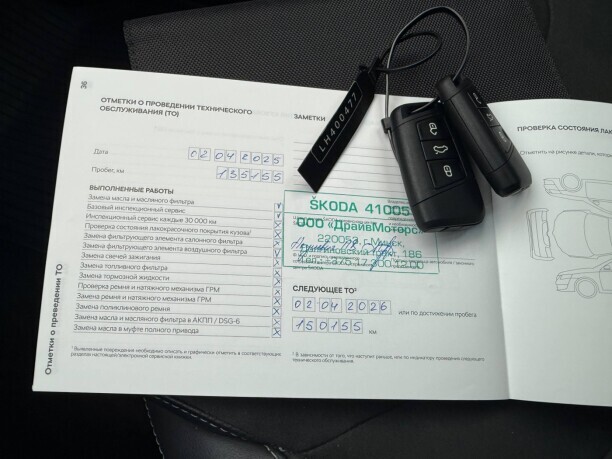 36
ОТМЕТКИ О ПРОВЕДЕНИИ ТЕХНИЧЕСКОГО
ОБСЛУЖИВАНИЯ (ТО)
Дата 02 04 2025
Пробег, км 135155
ВЫПОЛНЕННЫЕ РАБОТЫ
Замена масла и масляного фильтра
Базовый инспекционный сервис
Инспекционный сервис каждые 30 000 км
Проверка состояния лакокрасочного покрытия кузова¹
Замена фильтрующего элемента салонного фильтра
Замена фильтрующего элемента воздушного фильтра
Замена свечей зажигания
Замена топливного фильтра
Замена тормозной жидкости
Проверка ремня и натяжного механизма ГРМ
Замена ремня и натяжного механизма ГРМ
Замена поликлинового ремня
Замена масла и масляного фильтра в АКПП / DSG-6
Замена масла в муфте полного привода
¹ Выявленные повреждения необходимо описать и графически отметить в соответствующих
разделах настоящей/электронной сервисной книжки.
Отметки о проведении ТО
ЗАМЕТКИ
ŠKODA 41005
ООО "ДрайвМоторс"
220053, г. Минск,
186
СЛЕДУЮЩЕЕ ТО²
02 04 2026 или по достижении пробега
150155 км.
² В зависимости от того, что наступит раньше, или по индикатору проведения следующего
технического обслуживания.
LH400477
ПРОВЕРКА СОСТОЯНИЯ ЛАК
Отметить на рисунке